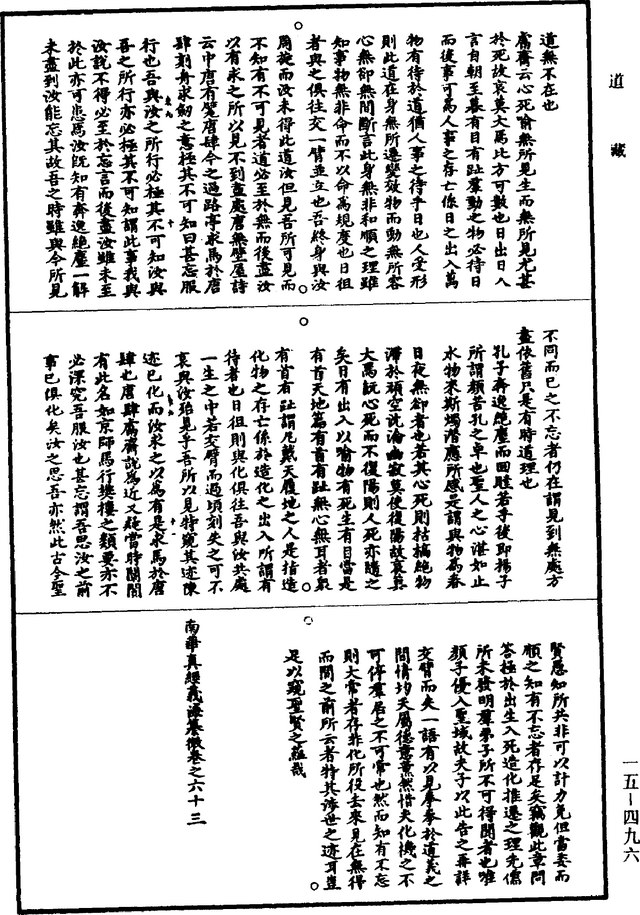 道藏
道無不在也
鬳齋云心死喻無所見生而無所見尤甚
於死故哀莫大焉比方可數也日出日入
言自朝至暮有目有趾羣動之物必待日
而後事可為人事之存亡係日之出入萬
物有待於道猶人事之待乎日也人受形
則此道在身無所遷變效物而動無所容
心無卻無間斷言此身無非和順之理雖
知事物無非命而不以命為規度也日徂
者與之俱往交一臂並立也吾終身與汝
周旋而汝未得此道汝但見吾所可見而
不知有不可見者道必至於無而後盡汝
以有求之所以見不到盡處唐無壁屋詩
云中唐有甓唐肆今之過路亭求馬於唐
肆刻舟求劍之意極其不可知曰甚忘服
行也吾與汝之所行必極其不可知汝與
吾之所行亦必極其不可知謂此事我與
汝說不得必至於忘言而後盡汝雖未至
於此亦可患焉汝既知有奔逸絕塵一解
未盡到汝能忘其故吾之時雖與今所見
不同而已之不忘者仍在謂見到無處方
盡依舊只是有時道理也
孔子奔逸絕塵而回瞠若乎後即揚子
所謂顏苦孔之卓也聖人之心湛如止
水物來斯燭潛應所感是謂與物為春
日夜無卻者也若其心死則枯槁絕物
滯於頑空沈淪幽寂莫使復陽故哀莫
大焉既心死而不復陽則人死亦隨之
矣日有出入以喻物有死生有目當是
有首天地篇有首有趾無心無耳者衆
有首有趾謂凡戴天履地之人是皆造
化物之存亡係於造化之出入所謂有
待者也日徂則與化俱往吾與汝共處
一生之中若交臂而過頃刻失之可不
哀與汝殆見乎吾所以見特窺其迹陳
迹已化而汝求之以為有是求馬於唐
肆也唐肆鬳齋說為近又疑當時闤闠
有此名如京師馬行樊樓之類要亦不
必深究吾服汝也甚忘謂吾思汝之前
事已俱化矣汝之思吾亦然此古今聖
賢愚知所共非可以計力免但當委而
順之知有不忘者存足矣竊觀此章問
答極於出生入死造化推遷之理先儒
所未發明羣弟子所不可得聞者也唯
顏子優入聖域故夫子以此告之再詳
交臂而失一語有以見拳拳於道義之
間情均天屬德意藹然惜夫化機之不
可停羣居之不可常也然而知有不忘
則大常者存非化所役去來見在無得
而間之前所云者特其涉世之迹耳豈
足以窺聖賢之蘊哉
南華真經義海纂微卷之六十三
一五－四九六